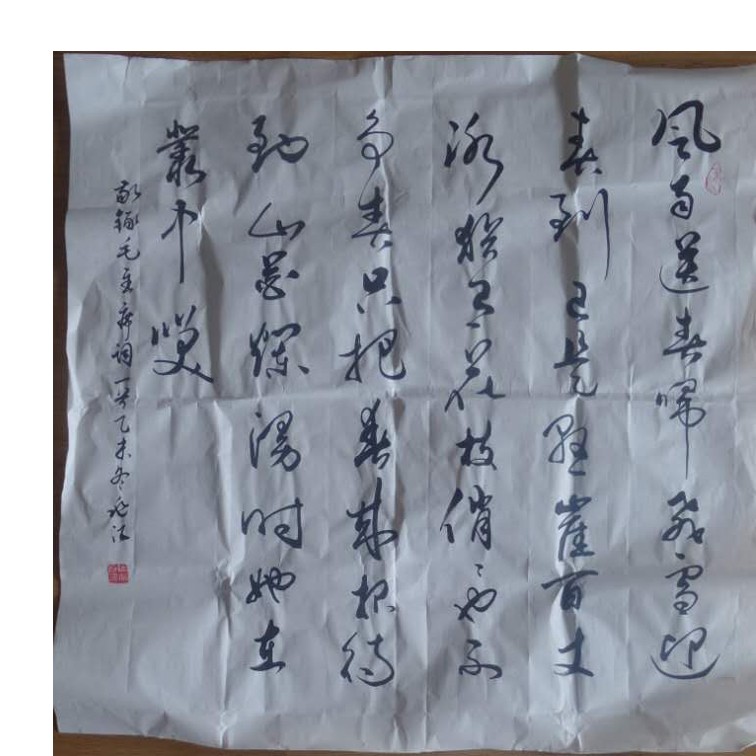 风雨送春帰飛雪迎
春到已是懸崖百丈
冰猶有花枝俏〻也不
争春只把春来报待
到山花爛漫时她在
叢中咲
敬録毛主席词一首乙未冬